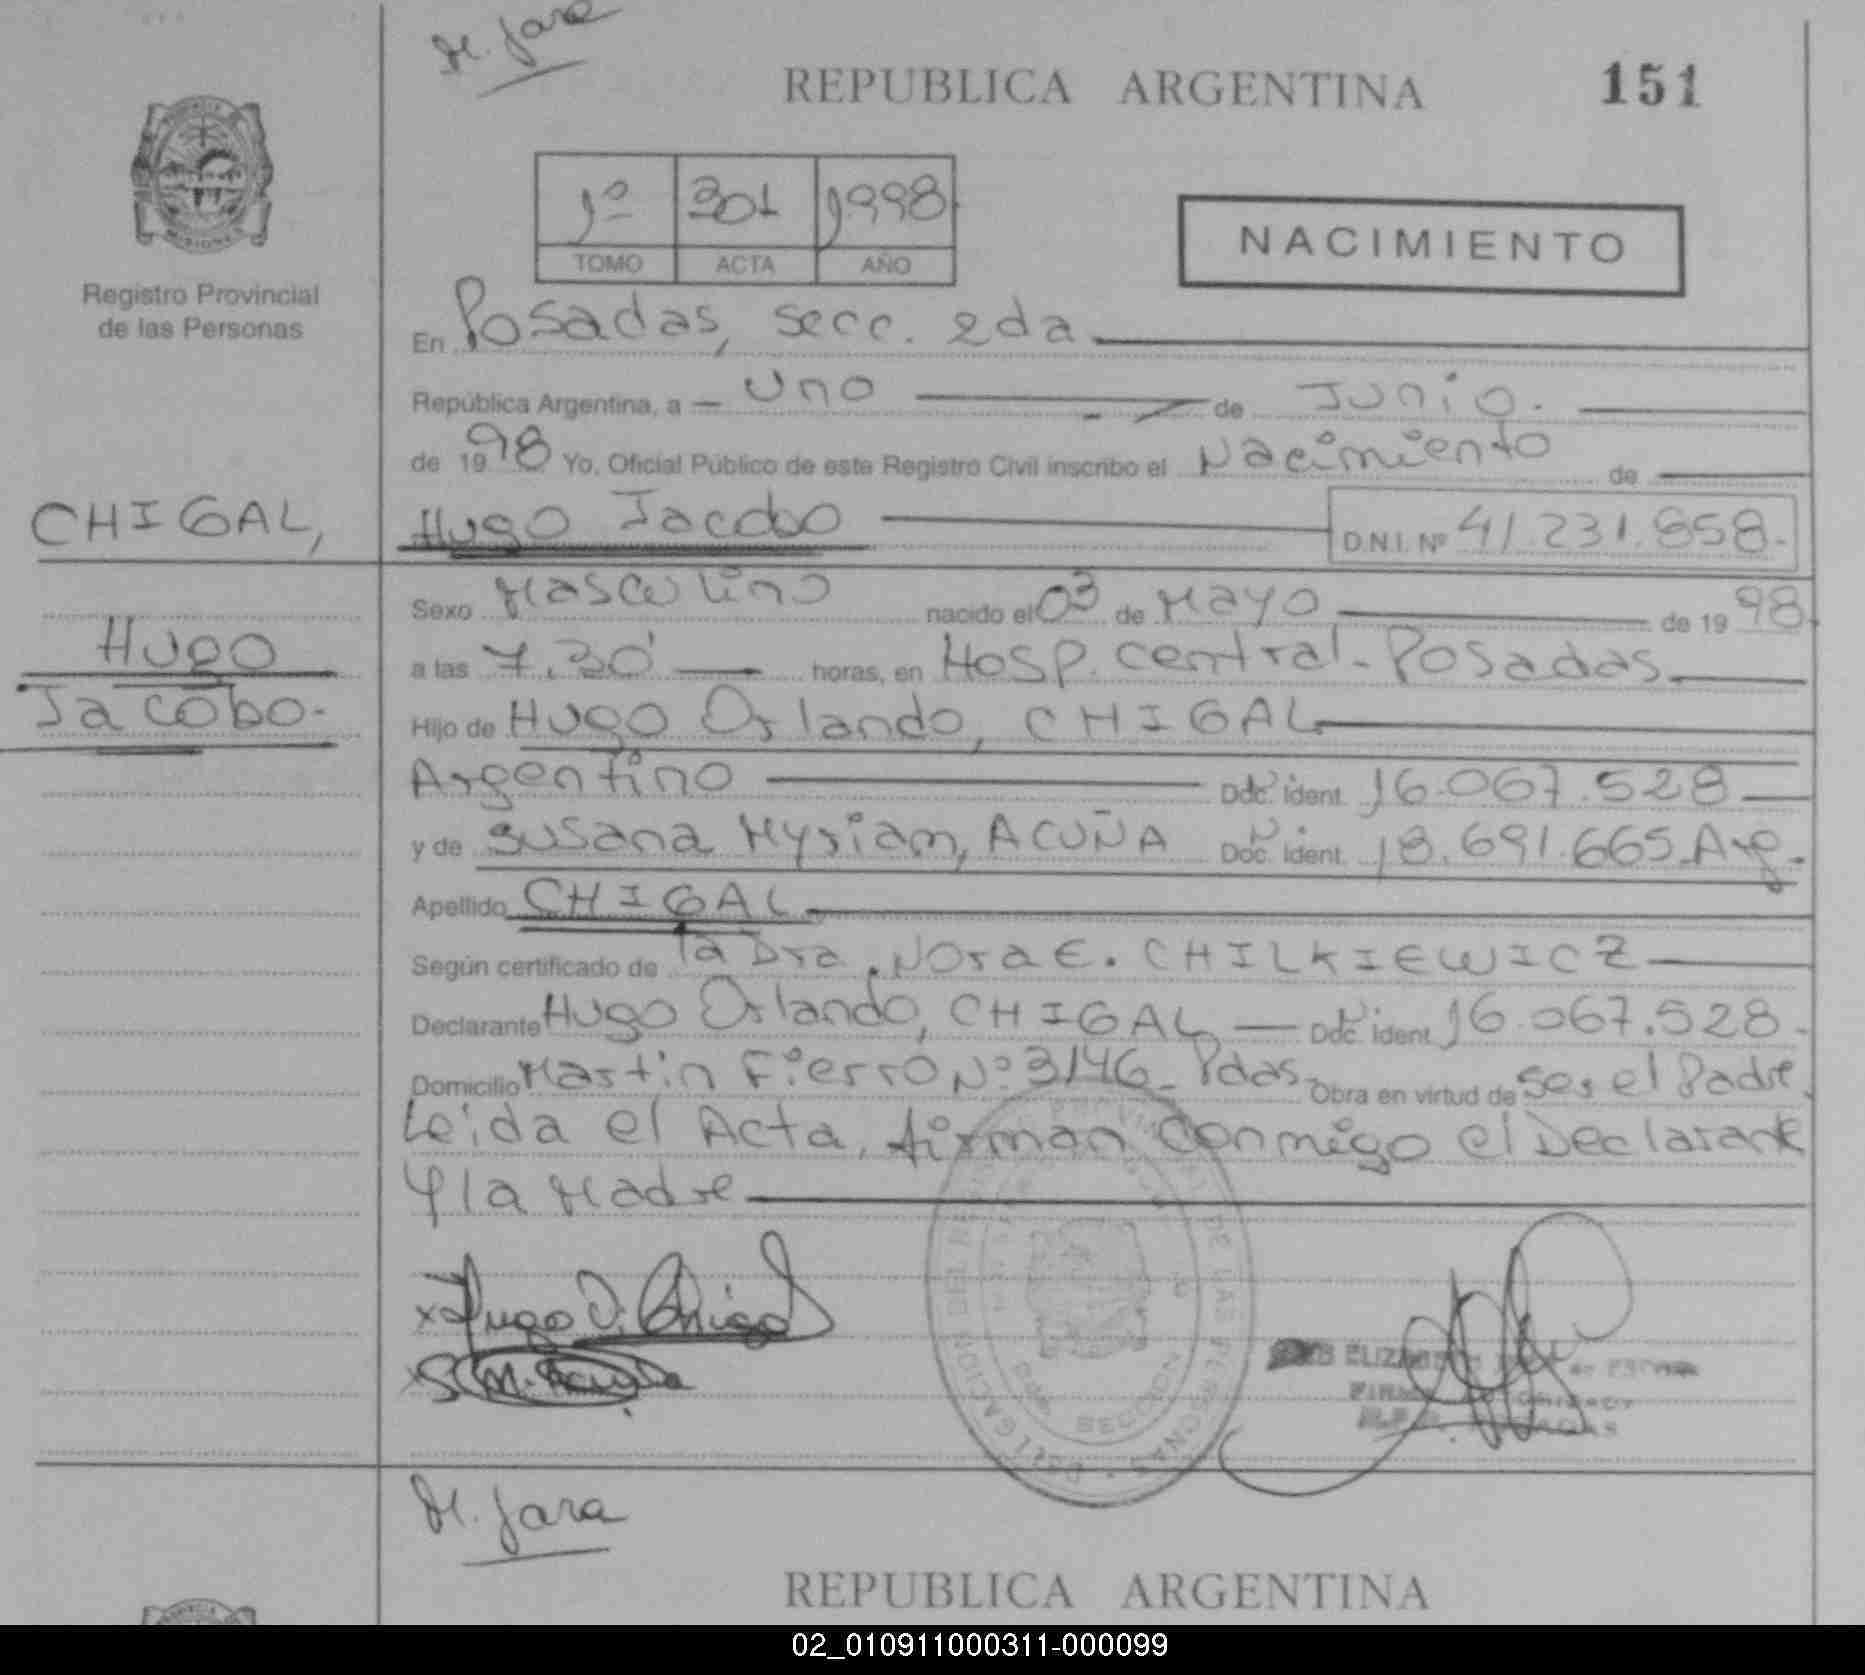 M. Jara
REPUBLICA ARGENTINA 151
1º 301 1998
TOMO ACTA AÑO
NACIMIENTO
MISIONES
Registro Provincial
de las Personas
En Posadas, secc. 2da
República Argentina, a - uno de Junio.
de 1998 Yo, Oficial Público de este Registro Civil inscribo el Nacimiento de
CHIGAL, Hugo Jacobo D.N.I. Nº 41.231.858.-
Sexo Masculino nacido el 03 de Mayo de 1998
Hugo
a las 7.30' horas, en Hosp. central - Posadas
Jacobo.-
Hijo de Hugo Orlando, CHIGAL
Argentino Doc. Ident. 16.067.528
y de Susana Myriam, ACUÑA Doc. Ident. 18.691.665 Arg.
Apellido CHIGAL
Según certificado de la Dra. Nora E. CHILKIEWICZ
Declarante Hugo Orlando, CHIGAL Doc. Ident. 16.067.528.-
Domicilio Martin Fierro Nº 3146 - Pdas. Obra en virtud de ser el Padre.
Leida el Acta, firman conmigo el Declarante
y la Madre
x Hugo O. Chigal
x S. M. Acuña
ELIZABETH
SECCION
M. Jara
REPUBLICA ARGENTINA
02_010911000311-000099